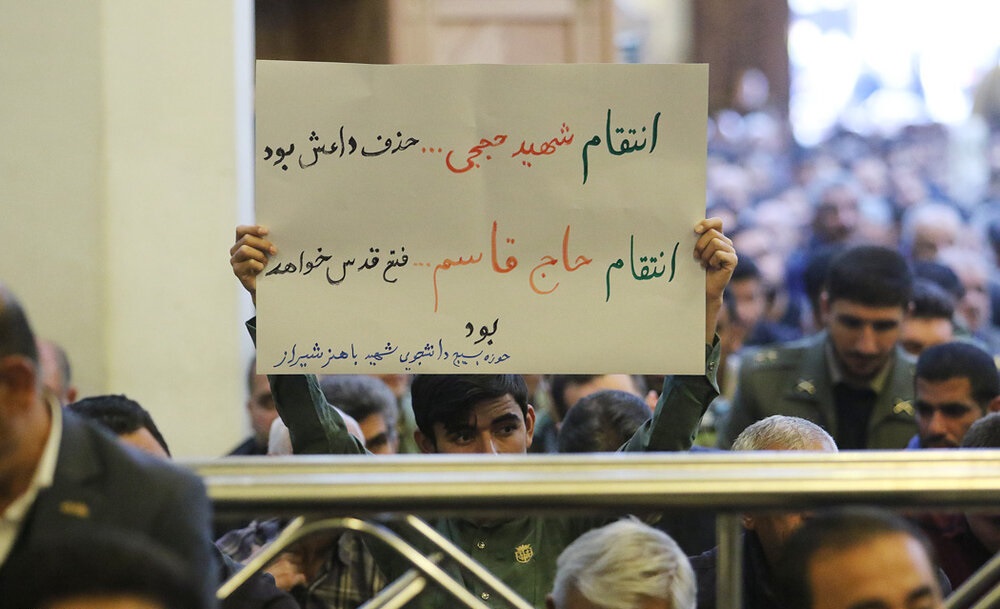 انتقام شهید حججی... حذف داعش بود
انتقام حاج قاسم... فتح قدس خواهد
بود
حوزه بسیج دانشجویی شهید باهنر شیراز